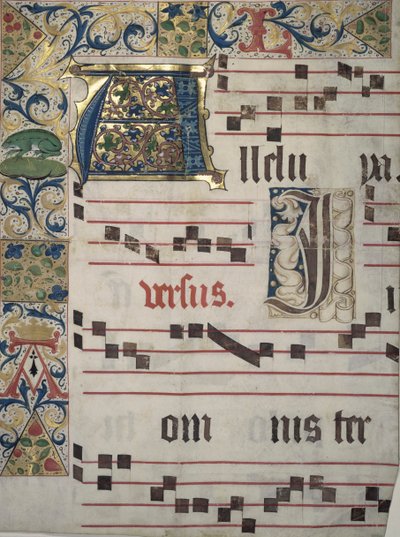 L
Allelu ya.
versus. J
om nis ter
A